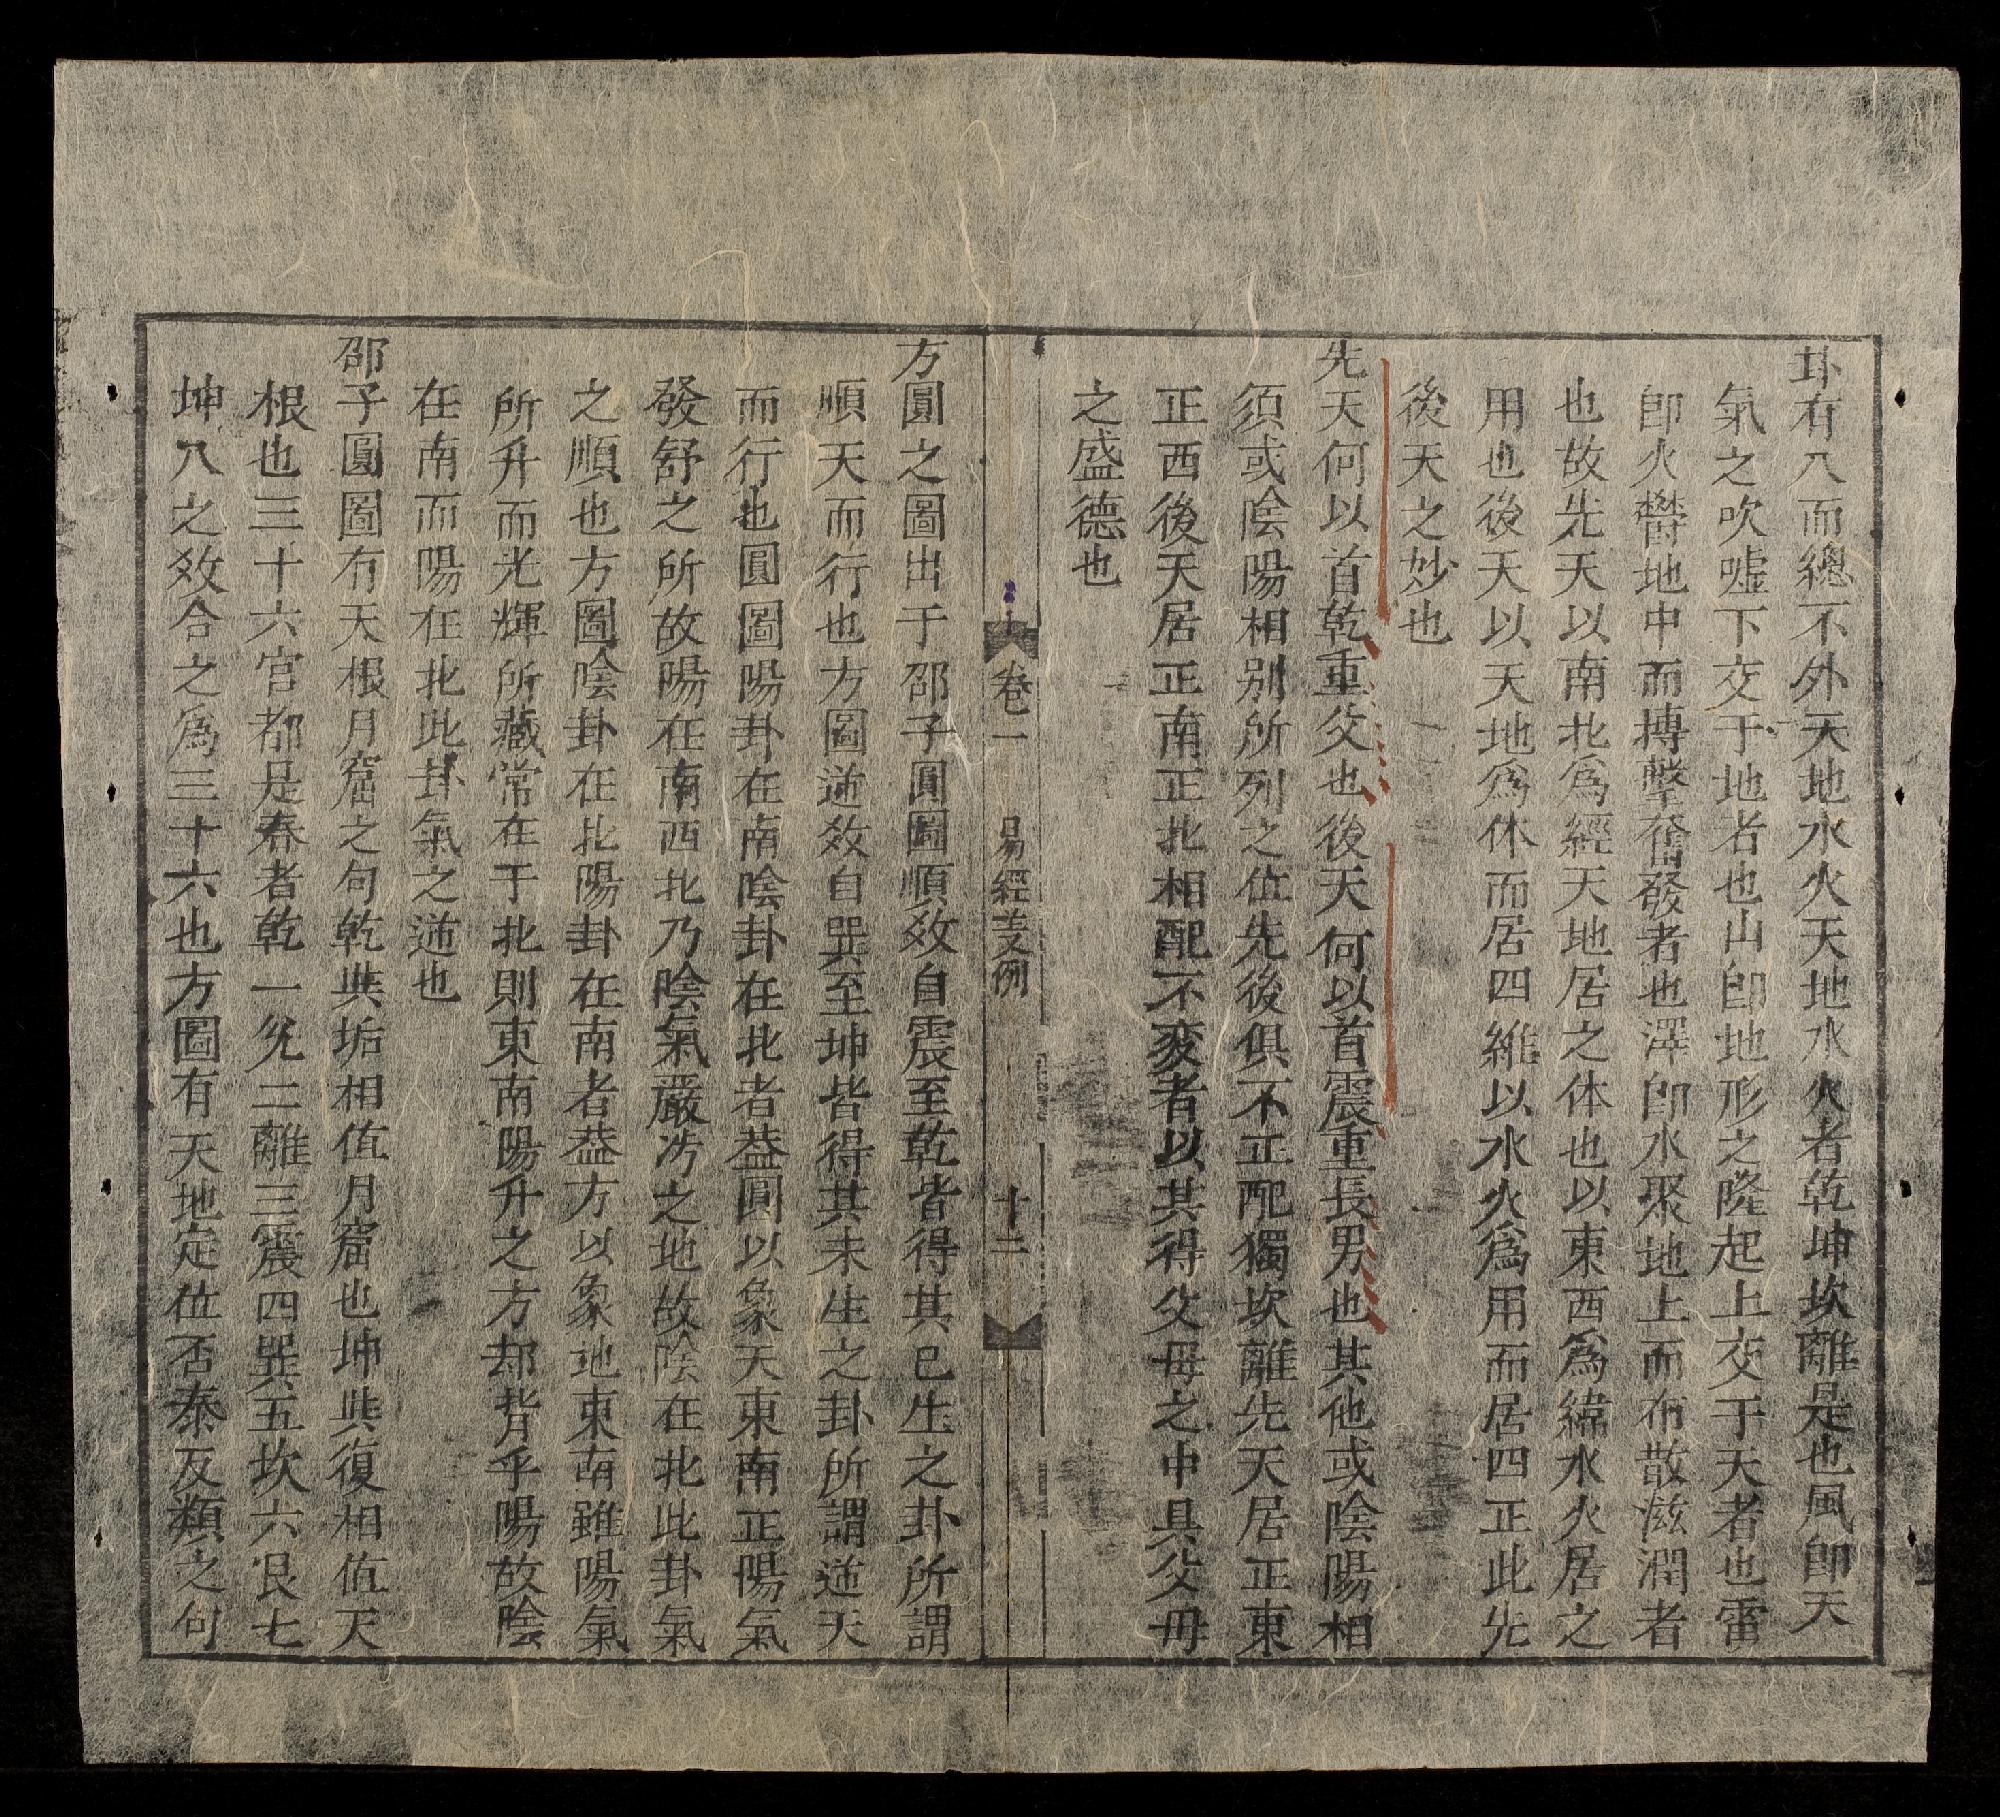 卦有八而總不外天地水火天地水火者乾坤坎離是也風卽天
氣之吹噓下交于地者也山卽地形之隆起上交于天者也雷
卽火欝地中而搏擊奮發者也澤卽水聚地上而布散滋潤者
也故先天以南北爲經天地居之体也以東西爲緯水火居之
用也後天以天地爲休而居四維以水火爲用而居四正此先
後天之妙也
先天何以首乾重父也後天何以首震重長男也其他或陰陽相
須或陰陽相别所列之位先後俱不正配獨坎離先天居正東
正西後天居正南正北相配不変者以其得父母之中具父母
之盛德也
卷一 易經𦍌例 十二
方圓之圖出于邵子圓圖順效自震至乾皆得其已生之卦所謂
順天而行也方圖逆效自巽至坤皆得其未生之卦所謂逆天
而行也圓圖陽卦在南陰卦在北者葢圓以象天東南正陽氣
發舒之所故陽在南西北乃陰氣嚴沍之地故陰在北此卦氣
之順也方圖陰卦在北陽卦在南者葢方以象地東南雖陽氣
所升而光輝所藏常在于北則東南陽升之方却背乎陽故陰
在南而陽在北此卦氣之逆也
邵子圓圖有天根月窟之句乾與垢相值月窟也坤與復相值天
根也三十六宫都是春者乾一兊二離三震四巽五坎六艮七
坤八之效合之爲三十六也方圖有天地定位否泰反類之句